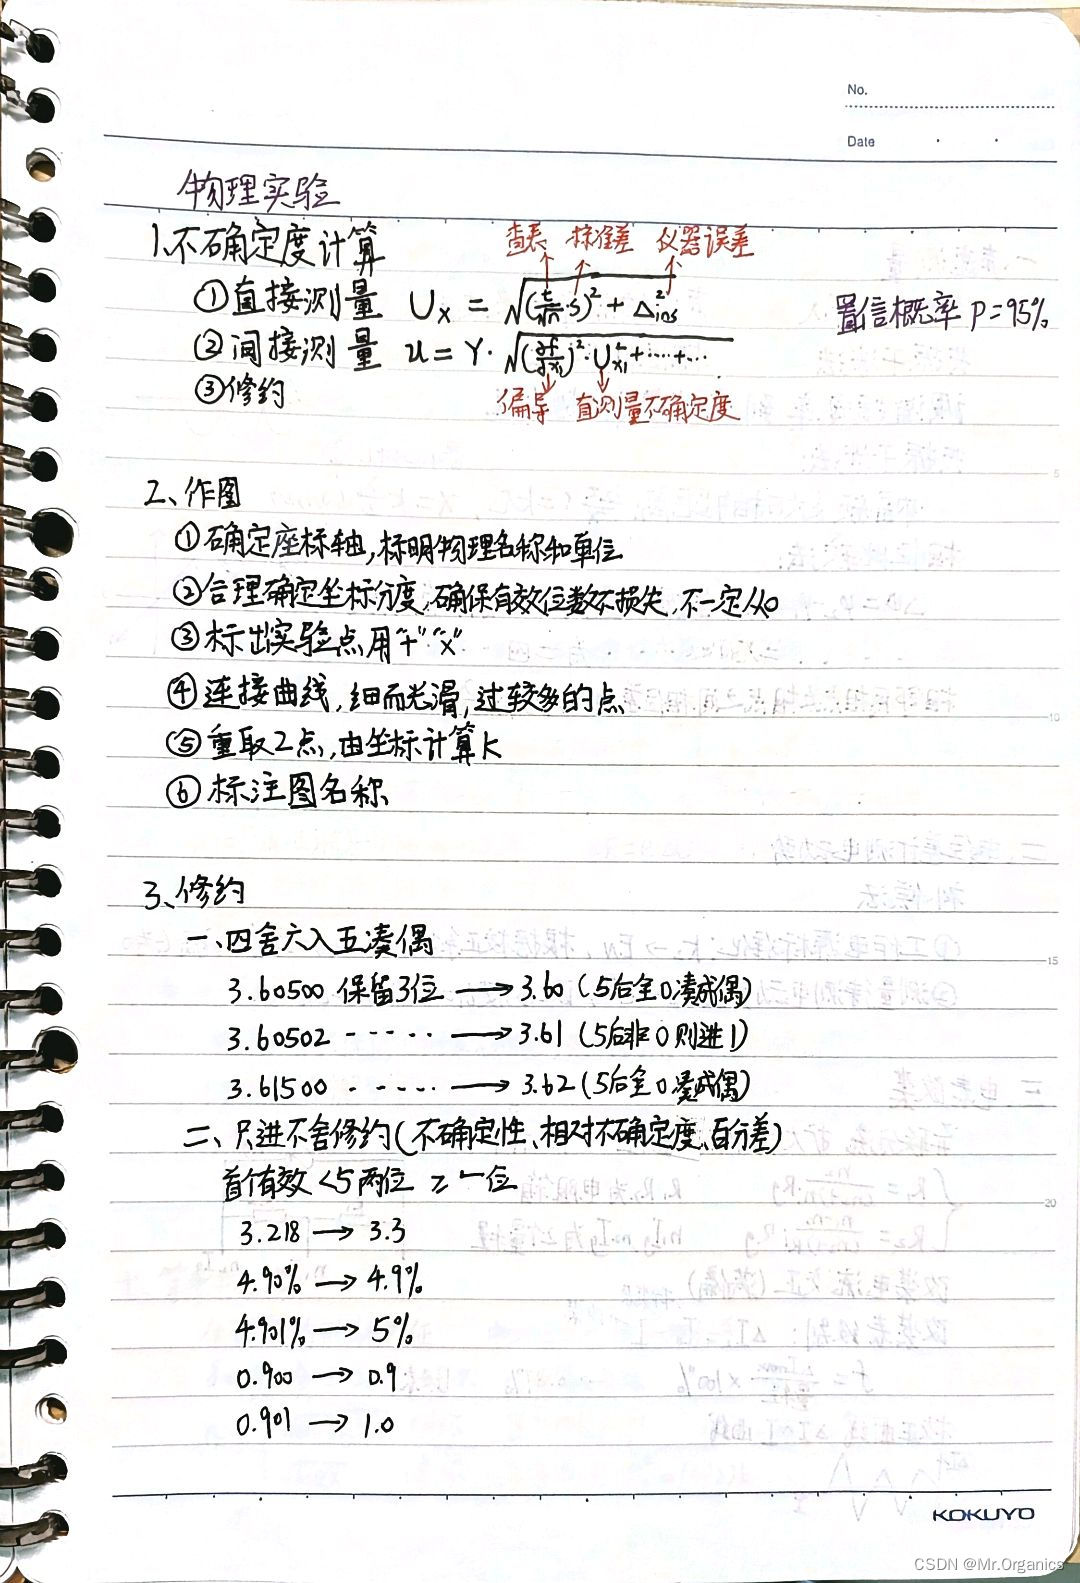 No.
Date
物理实验
1、不确定度计算
查表 标准差 仪器误差
①直接测量 Ux = √((t/√n)·S)² + Δ²ins
置信概率 P=95%
②间接测量 u = Y·√(∂f/∂x₁)²·U²x₁+……+…
③修约
偏导 直测量不确定度
2、作图
①确定座标轴,标明物理名称和单位
②合理确定坐标分度,确保有效位数不损失,不一定从0
③标出实验点用"+" "×"
④连接曲线,细而光滑,过较多的点
⑤重取2点,由坐标计算K
⑥标注图名称
3、修约
一、四舍六入五凑偶
3.60500 保留3位 → 3.60 (5后全0凑成偶)
3.60502 ----- → 3.61 (5后非0则进1)
3.61500 ----- → 3.62 (5后全0凑成偶)
二、只进不舍修约(不确定性、相对不确定度、百分差)
首位有效<5两位 ≥一位
3.218 → 3.3
4.90% → 4.9%
4.901% → 5%
0.900 → 0.9
0.901 → 1.0
KOKUYO
CSDN @Mr.Organics